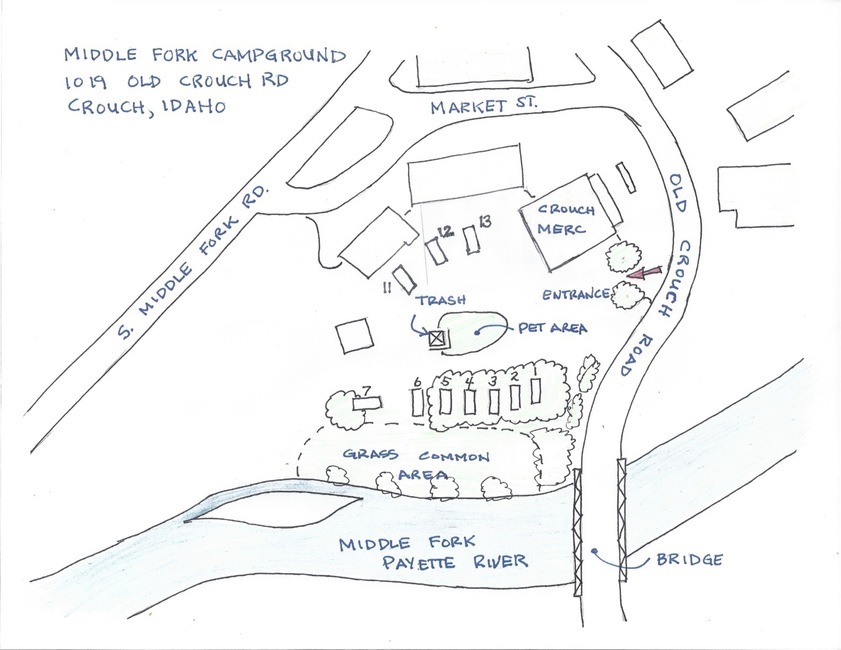 MIDDLE FORK CAMPGROUND
1019 OLD CROUCH RD
CROUCH, IDAHO
MARKET ST.
S. MIDDLE FORK RD.
OLD CROUCH ROAD
CROUCH
MERC
12
13
11
ENTRANCE
TRASH
PET AREA
7
6
5
4
3
2
GRASS COMMON
AREA
MIDDLE FORK
PAYETTE RIVER
BRIDGE